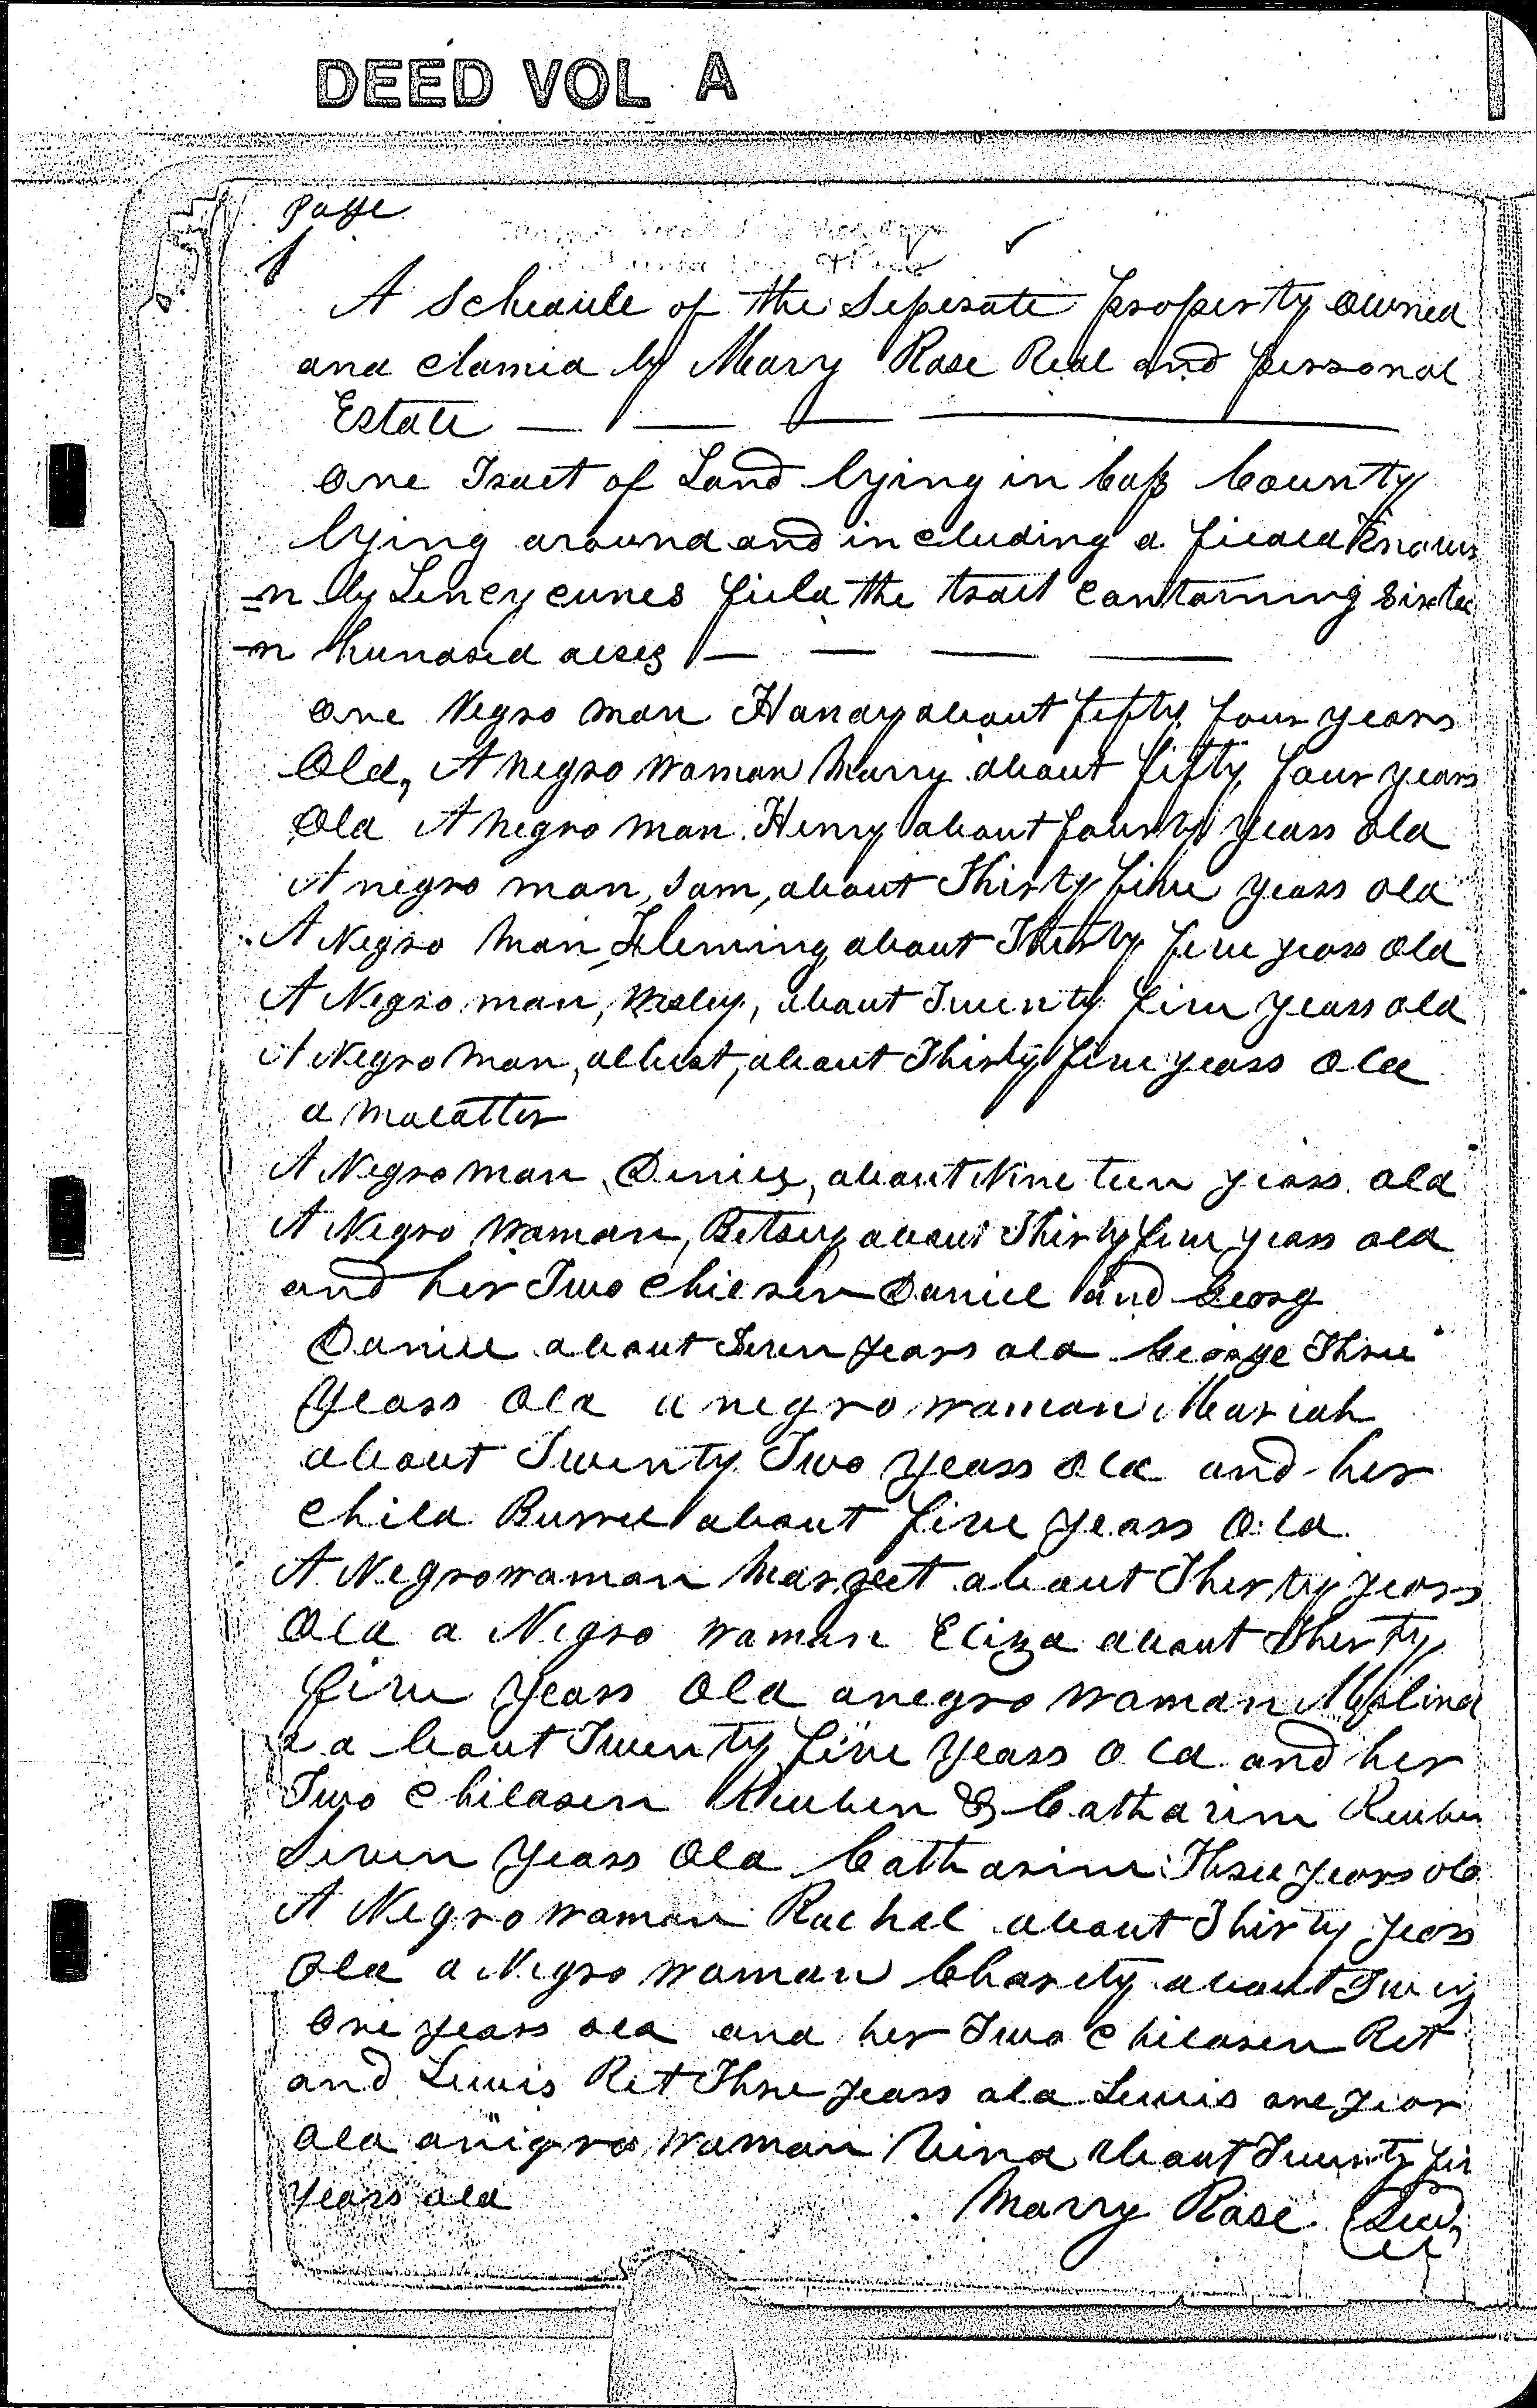 DEED VOL A
page
1
A Schedule of the Seperate property owned
and clamed by Mary Rose Real and personal
Estate
One Tract of Land lying in Cass County
lying around and including a field Know
-n by field the tract contaning Sixtee
-n hundred acres
One Negro man Handy about fifty four years
Old, A negro woman Marry about fifty four years
Old A negro man Henry about fourty years old
A negro man, Sam, about Thirty five years old
A Negro Man, Fleming about Thirty five years old
A Negro man, Wesley, about Twenty five years old
A Negro Man, albert, about Thirty five years old
a malatter
A Negro man, about Nineteen years old
A Negro Woman, Betsey about Thirty five years old
and her Two Children Daniel and Georg
Daniel about Seven years old George Three
years old a negro woman Mariah
about Twenty Two years old and her
child Burrel about five years old
A Negro woman Margeet about Thirty years
Old a Negro woman Eliza about Thirty
five years old a negro woman Malind
a about Twenty five years old and her
Two Children Reuben & Catharine Reuben
Seven years old Catharine Three years old
A Negro woman Rachel about Thirty years
old a Negro woman Charety about
One years old and her Two Children Ret
and Lewis Ret Three years old Lewis one year
old a nigro woman Vina about Twenty
years old
Marry Rose